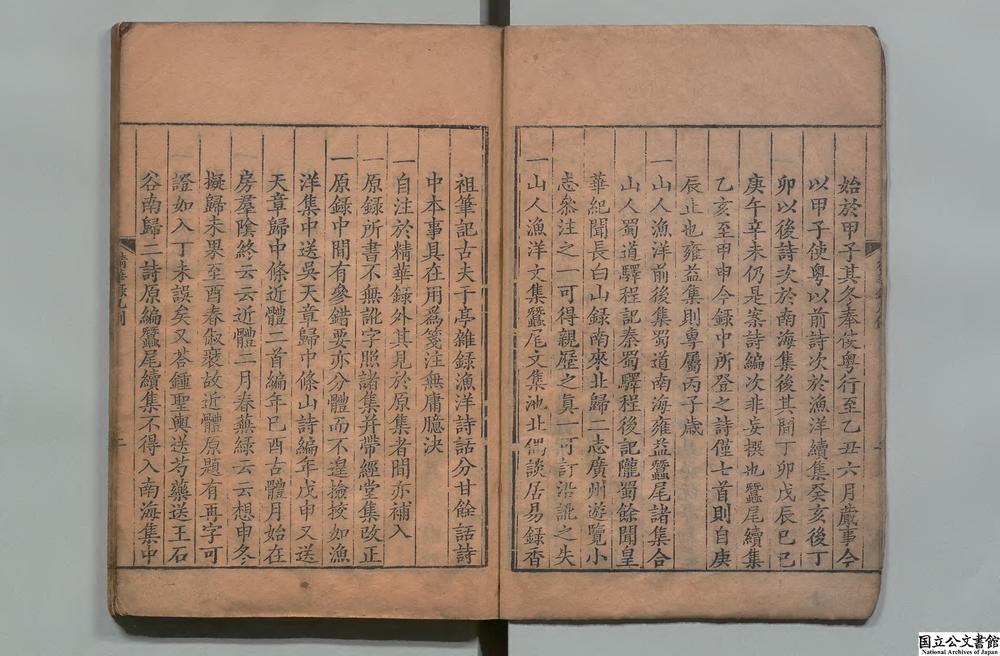 始於甲子其冬奉使粤行至乙丑六月歲事今
以甲子使粤以前詩次於漁洋續集癸亥後丁
卯以後詩次於南海集後其間丁卯戊辰己巳
庚午辛未仍是案詩編次非妄撰也蠶尾續集
乙亥至甲申今録中所登之詩僅七首則自庚
辰止也雍益集則專屬丙子歲
一山人漁洋前後集蜀道南海雍益蠶尾諸集合
山人蜀道驛程記秦蜀驛程後記隴蜀餘聞皇
華紀聞長白山録南來北歸二志廣州遊覽小
志叅注之一可得親歷之真一可訂沿訛之失
一山人漁洋文集蠶尾文集池北偶談居易録香
祖筆記古夫于亭雜録漁洋詩話分甘餘話詩
中本事具在用爲箋注無庸臆決
一自注於精華録外其見於原集者間亦補入
一原録所書不無訛字照諸集并帶經堂集改正
一原録中間有參錯要亦分體而不遑撿挍如漁
洋集中送吳天章歸中條山詩編年戊申又送
天章歸中條近體二首編年己酉古體月始在
房羣陰終云云近體二月春蕪緑云云想申冬
擬歸未果至酉春俶裝故近體原題有再字可
證如入丁未誤矣又荅鍾聖輿送芍藥送王石
谷南歸二詩原編蠶尾續集不得入南海集中
国立公文書館
National Archives of Japan